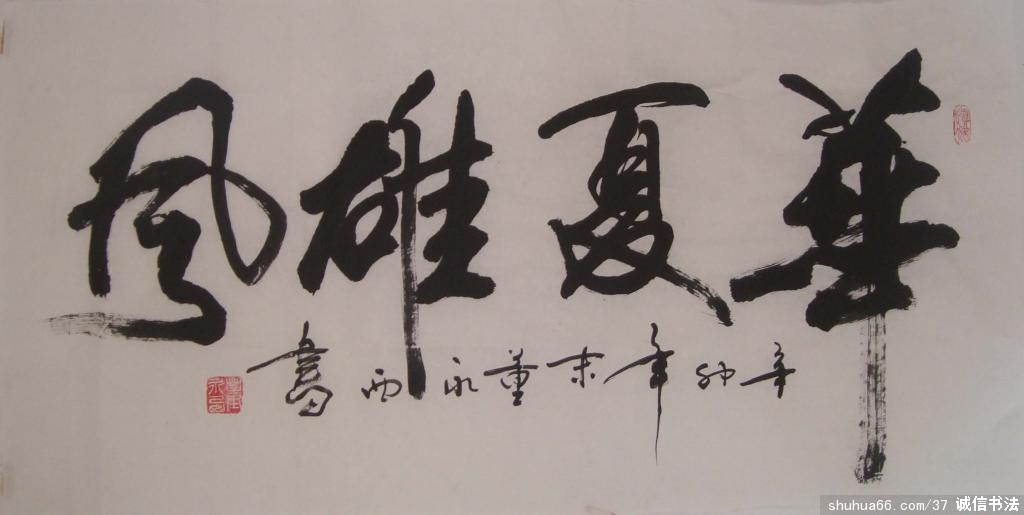 華夏雄風
辛卯年末董永西書
shuhua66. com/37 诚信书法